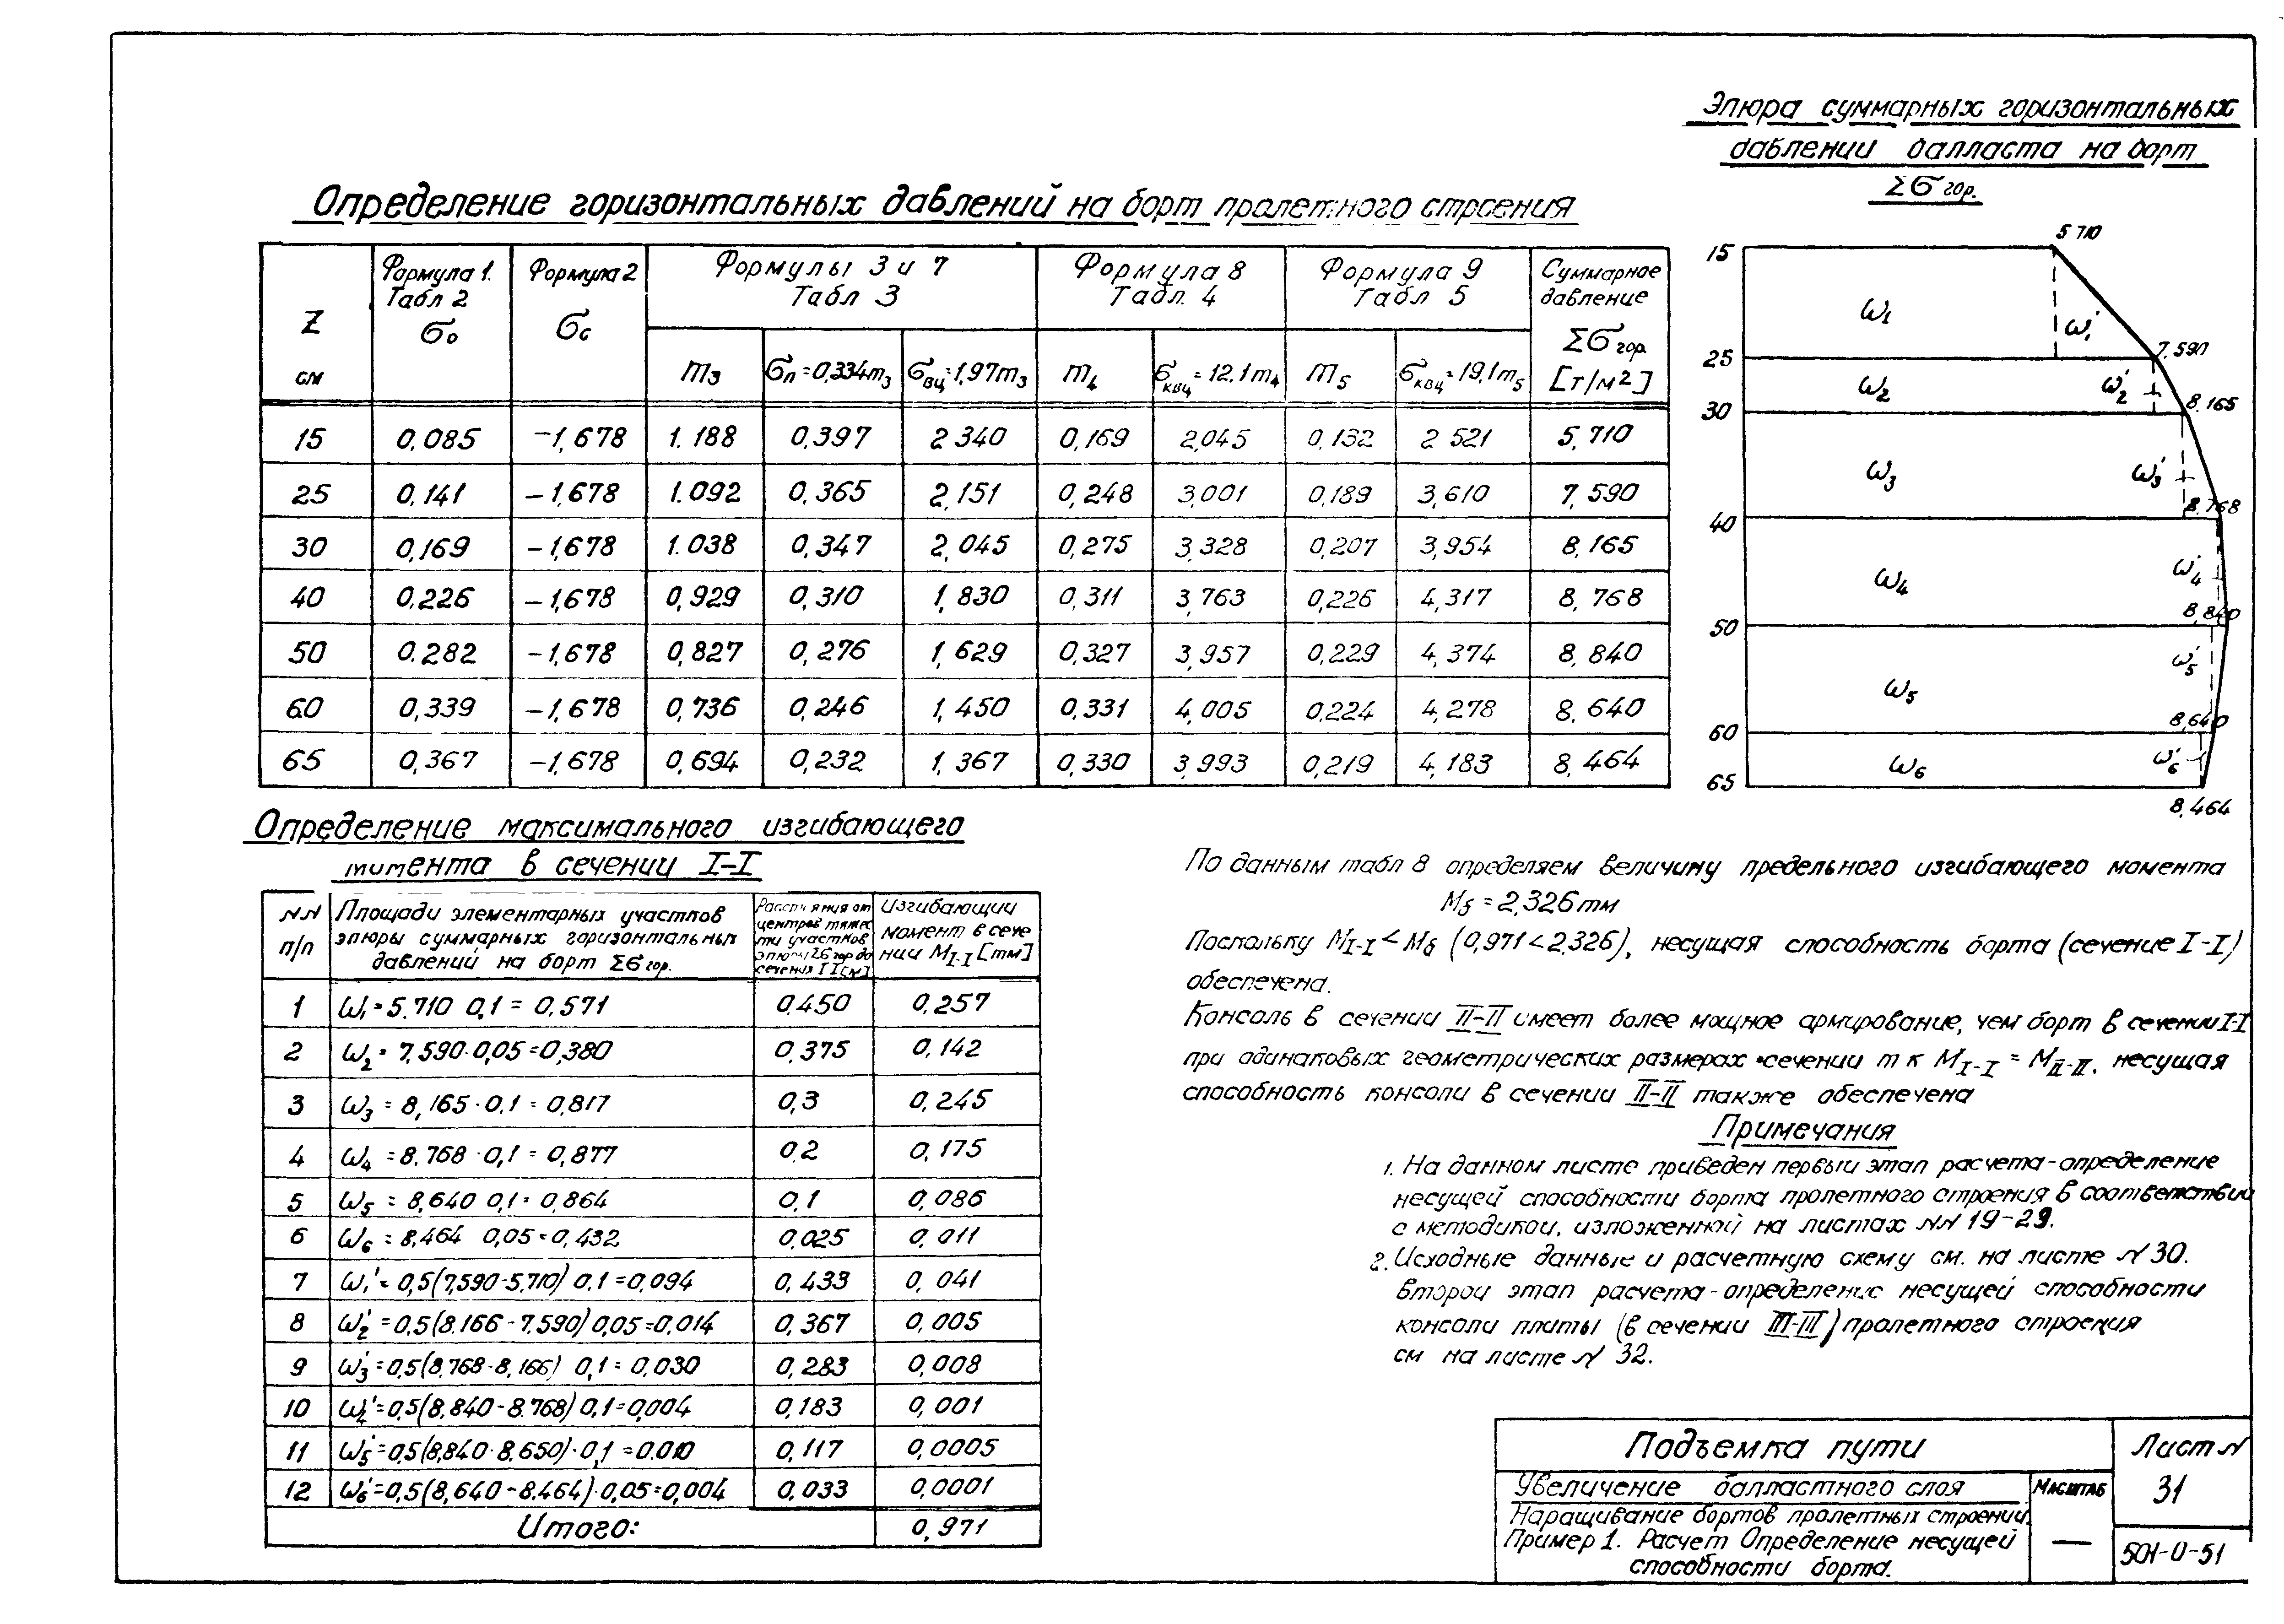 Эпюра суммарных горизонтальных
давлении балласта на борт
Σσ гор.
Определение горизонтальных давлений на борт пролетного строения
Z см | Формула 1. Табл 2 σ₀ | Формула 2 σс | Формулы 3 и 7 Табл 3 | Формула 8 Табл. 4 | Формула 9 Табл 5 | Суммарное давление Σσ гор. [т/м²]
m₃ | σп=0,334m₃ | σвц=1,97m₃ | m₄ | σквц=12.1m₄ | m₅ | σквц=19,1m₅
15 | 0,085 | -1,678 | 1.188 | 0,397 | 2 340 | 0,169 | 2,045 | 0,132 | 2 521 | 5,710
25 | 0,141 | -1,678 | 1.092 | 0,365 | 2,151 | 0,248 | 3,001 | 0,189 | 3,610 | 7,590
30 | 0,169 | -1,678 | 1.038 | 0,347 | 2,045 | 0,275 | 3,328 | 0,207 | 3,954 | 8,165
40 | 0,226 | -1,678 | 0,929 | 0,310 | 1,830 | 0,311 | 3,763 | 0,226 | 4,317 | 8,768
50 | 0.282 | -1,678 | 0,827 | 0,276 | 1,629 | 0,327 | 3,957 | 0,229 | 4,374 | 8,840
60 | 0,339 | -1,678 | 0,736 | 0,246 | 1,450 | 0,331 | 4,005 | 0,224 | 4,278 | 8.640
65 | 0,367 | -1,678 | 0,694 | 0,232 | 1,367 | 0,330 | 3,993 | 0,219 | 4,183 | 8,464
5 710
15
ω₁ ω₁'
25 7,590
ω₂ ω₂'
30 8,165
ω₃ ω₃'
40 8,768
ω₄ ω₄'
50 8,840
ω₅ ω₅'
60 8,640
ω₆ ω₆'
65
8,464
Определение максимального изгибающего
момента в сечении I-I
NN п/п | Площади элементарных участков эпюры суммарных горизонтальных давлений на борт Σσ гор. | Расстояния от центров тяжести участков эпюры Σσ гор до сечения I I [м] | Изгибающии момент в сечении M I-I [тм]
1 | ω₁=5.710 0,1 = 0,571 | 0,450 | 0,257
2 | ω₂=7,590·0,05=0,380 | 0,375 | 0,142
3 | ω₃=8,165·0,1=0,817 | 0,3 | 0,245
4 | ω₄=8.768·0,1=0,877 | 0,2 | 0,175
5 | ω₅=8,640 0,1=0,864 | 0,1 | 0,086
6 | ω₆=8,464 0,05=0,432 | 0,025 | 0,011
7 | ω₁'=0,5(7,590-5,710) 0,1=0,094 | 0,433 | 0,041
8 | ω₂'=0,5(8.166-7.590) 0,05=0,014 | 0,367 | 0,005
9 | ω₃'=0,5(8,768-8,166) 0,1=0,030 | 0,283 | 0,008
10 | ω₄'=0,5(8,840-8.768) 0,1=0,004 | 0,183 | 0,001
11 | ω₅'=0,5(8,840-8,650)·0,1=0.010 | 0,117 | 0,0005
12 | ω₆'=0,5(8,640-8.464)·0,05=0,004 | 0,033 | 0,0001
Итого: | 0,971
По данным табл 8 определяем величину предельного изгибающего момента
Mб = 2,326 тм
Поскольку M I-I < Mб (0,971<2,326), несущая способность борта (сечение I-I)
обеспечена.
Консоль в сечении II-II имеет более мощное армирование, чем борт в сечении I-I
при одинаковых геометрических размерах сечении т к M I-I = M II-II. несущая
способность консоли в сечении II-II также обеспечена
Примечания
1. На данном листе приведен первыи этап расчета-определение
несущей способности борта пролетного строения в соответствии
с методикои, изложенной на листах NN 19-29.
2. Исходные данные и расчетную схему см. на листе N 30.
Второи этап расчета-определение несущей способности
консоли плиты (в сечении III-III) пролетного строения
см на листе N 32.
Подъемка пути
Лист N
31
Увеличение балластного слоя
Масштаб
—
Наращивание бортов пролетных строении.
Пример 1. Расчет Определение несущей
способности борта.
501-0-51